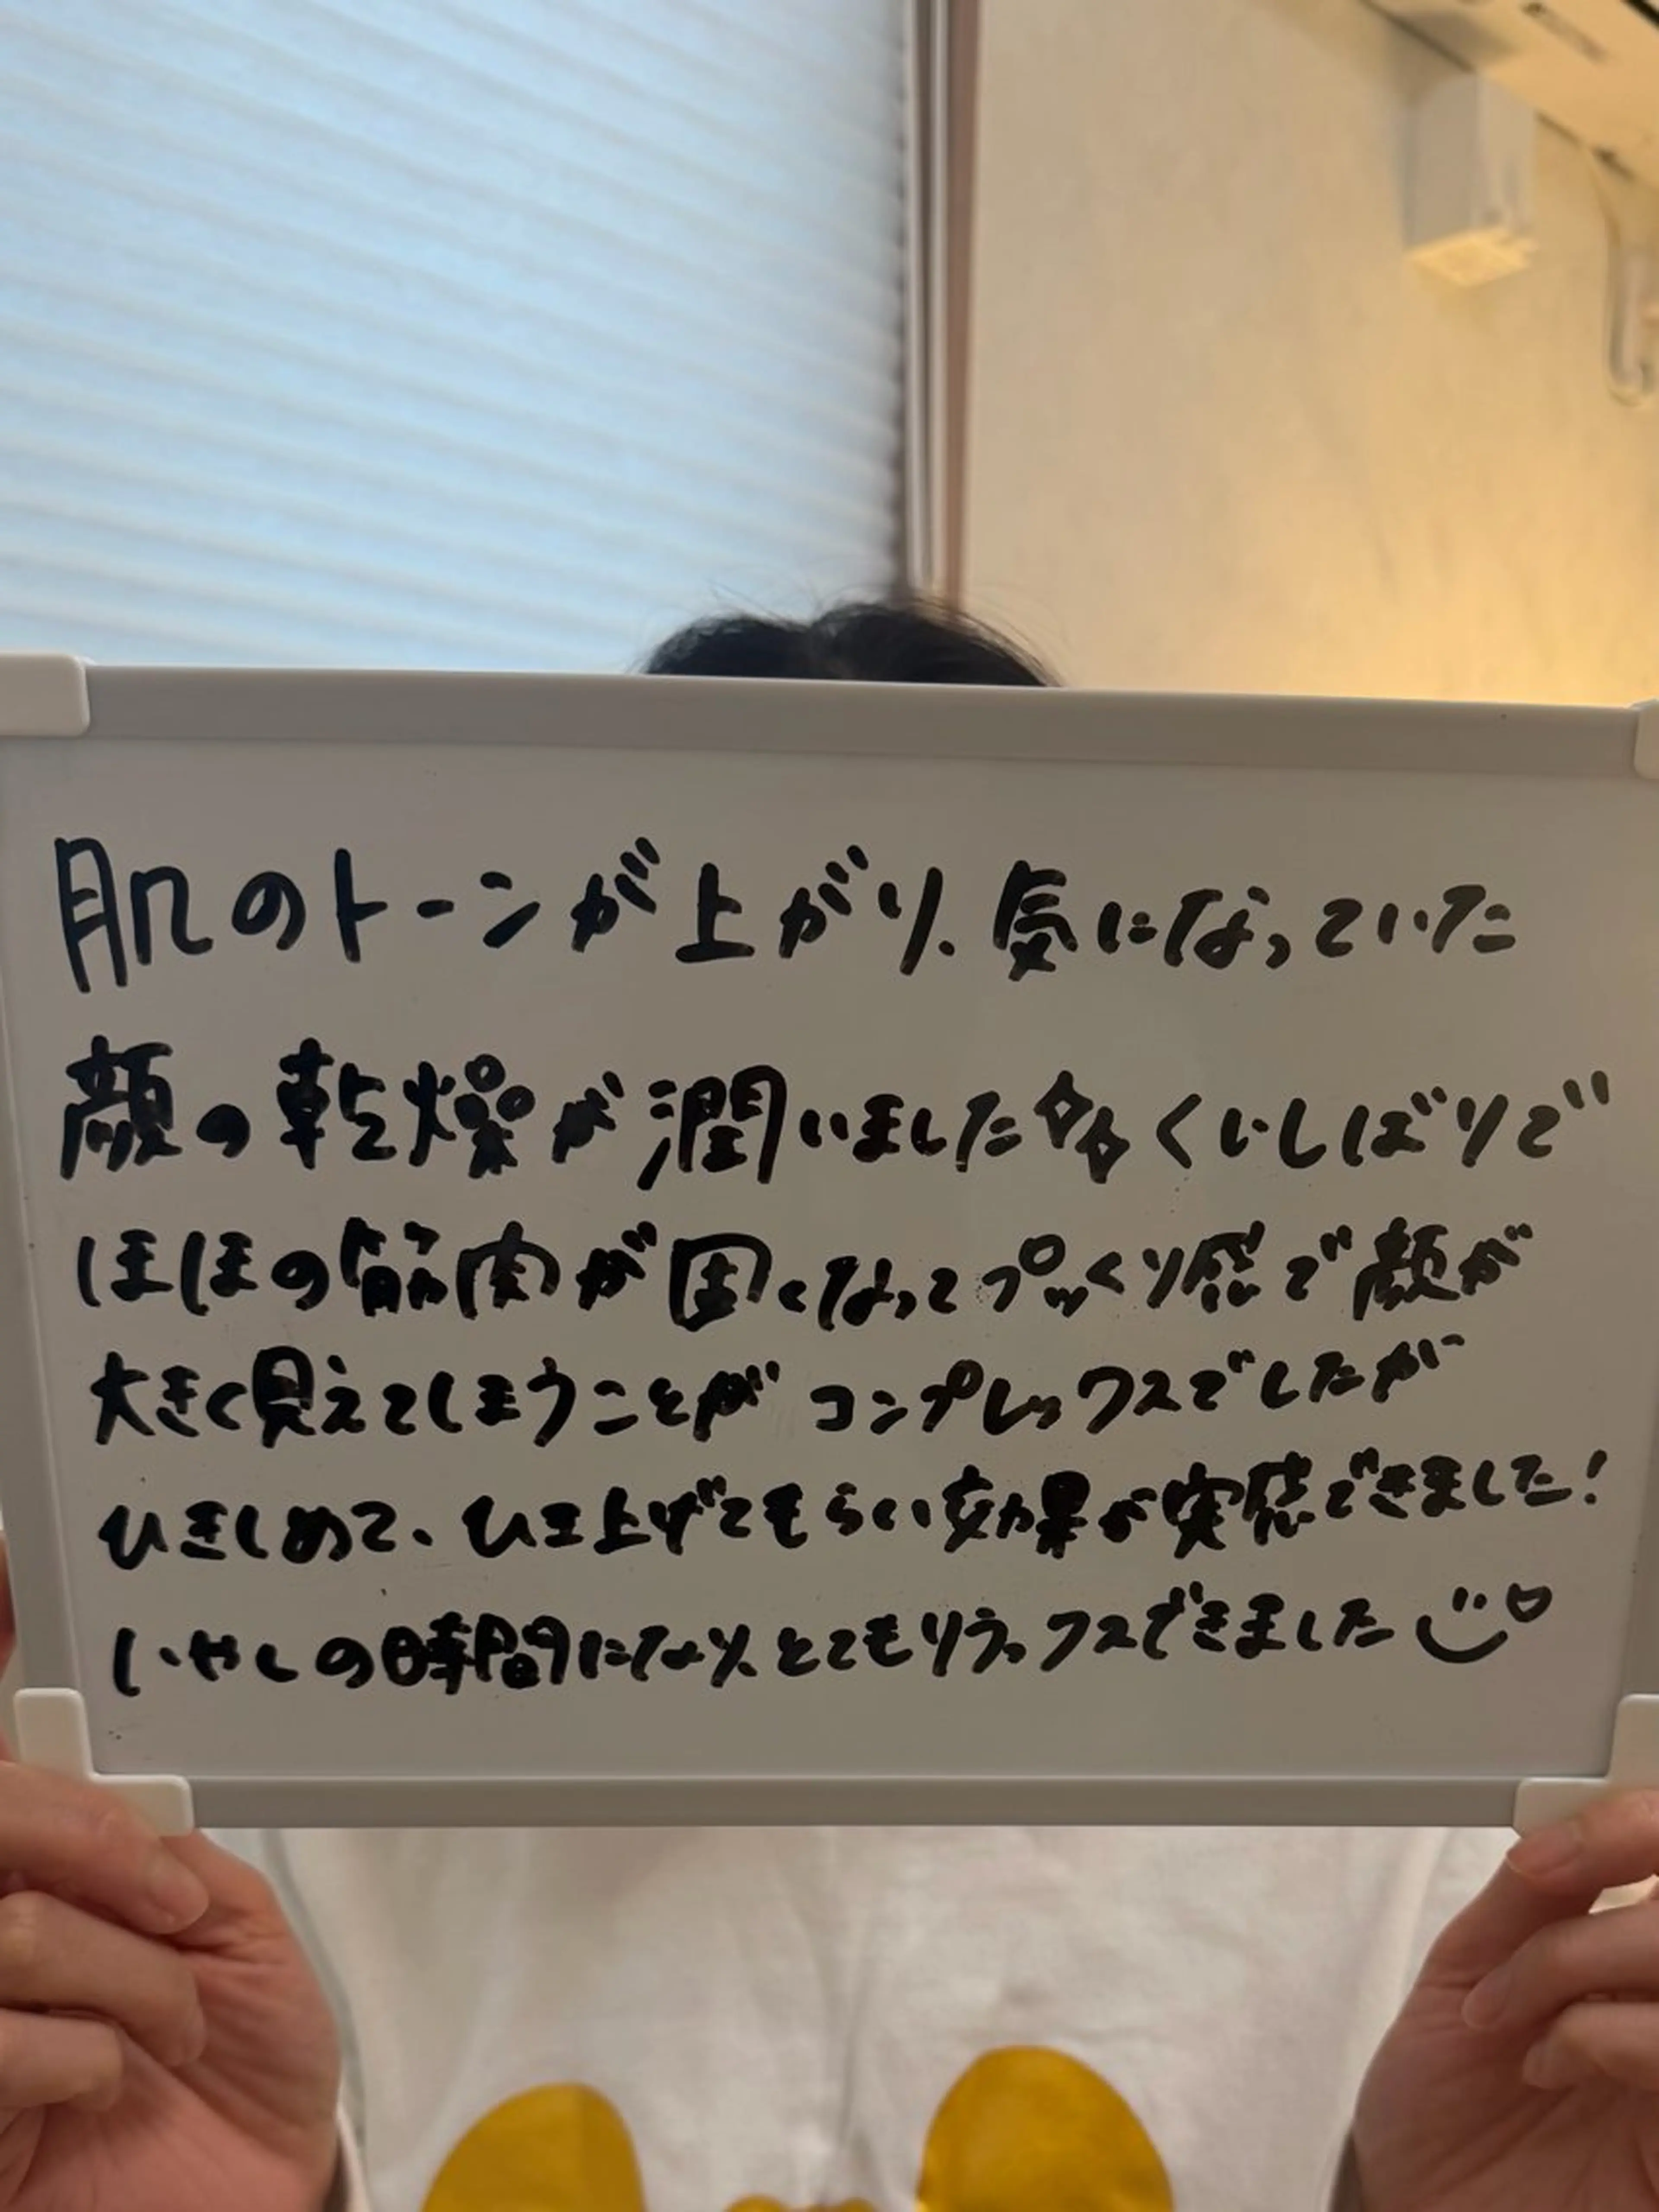 肌のトーンが上がり、気になっていた
顔の乾燥が潤いました くいしばりで
ほほの筋肉が固くなってプックリ感で顔が
大きく見えてしまうことがコンプレックスでしたが
ひきしめて、ひき上げてもらい効果が実感できました!
いやしの時間になり、とてもリラックスできました